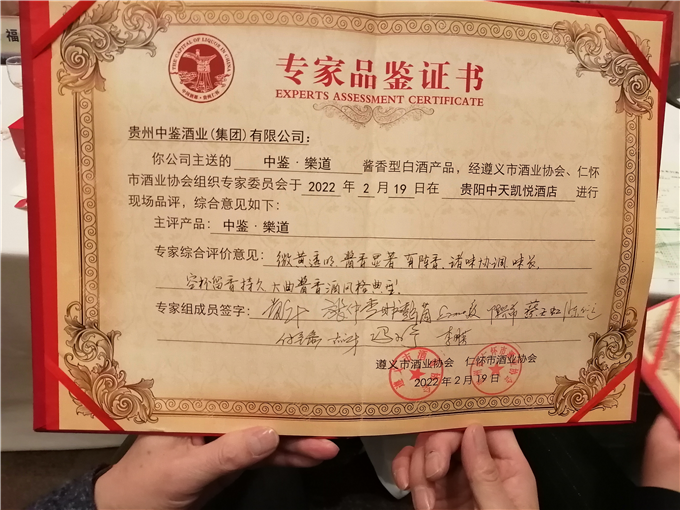 福
THE CAPITAL OF LIQUOR IN CHINA
中国酒都·贵州仁怀
专家品鉴证书
EXPERTS ASSESSMENT CERTIFICATE
贵州中鉴酒业(集团)有限公司:
你公司主送的 中鉴·樂道 酱香型白酒产品,经遵义市酒业协会、仁怀
市酒业协会组织专家委员会于 2022 年 2 月 19 日在 贵阳中天凯悦酒店 进行
现场品评,综合意见如下:
主评产品: 中鉴·樂道
专家综合评价意见: 微黄透明 酱香显著 有陈香 诸味协调 味长
空杯留香持久 大曲酱香酒风格典型
专家组成员签字:
遵义市酒业协会 仁怀市酒业协会
2022年2月19日